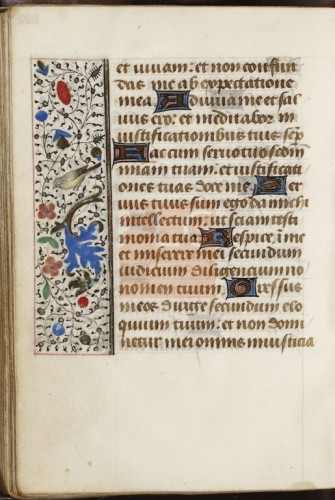 et vivam: et non confun
das me ab expectatione
mea. Adiuva me et sal
vus ero: et meditabor in
iustificationibus tuis sēp
Fac cum servo tuo secdm
miām tuam: et iustificati
ones tuas doce me. Ser
vus tuus sum ego da michi
intellectum: ut sciam testi
monia tua. Respice ī me
et miserere mei secundum
iudicium diligencium no
nomen tuum. Gressus
meos dirige secundum elo
quium tuum: et non domi
netur mei omnis iniusticia